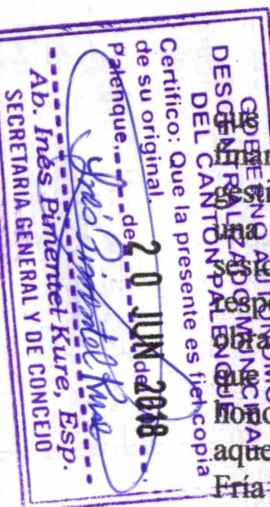 GOBIERNO AUTONOMO
DESCENTRALIZADO MUNICIPAL
DEL CANTON PALENQUE
Certifico: Que la presente es fiel copia
de su original.
Palenque, de 20 JUN 2018 del
Inés Pimentel Kure
Ab. Inés Pimentel Kure, Esp.
SECRETARIA GENERAL Y DE CONCEJO
que
finan
gesti
una
sesió
respo
obra
que
hono
aque
Fría